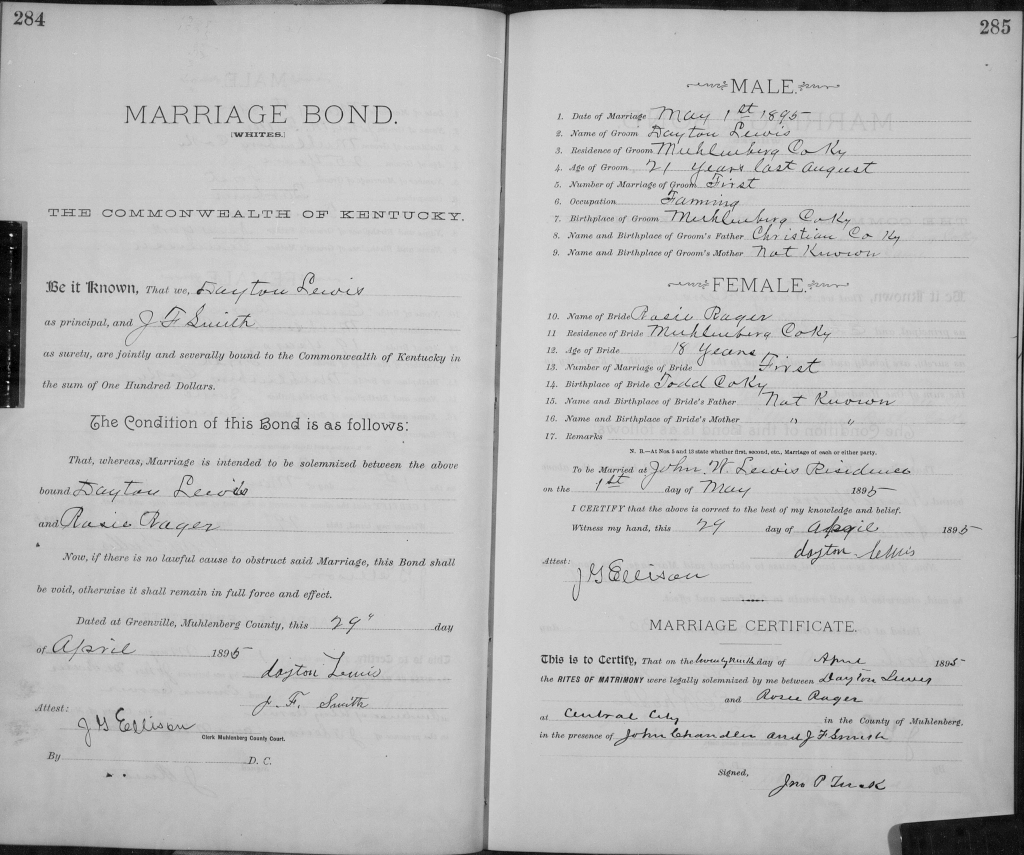 284
MARRIAGE BOND.
[WHITES.]
THE COMMONWEALTH OF KENTUCKY.
Be it Known, That we, Dayton Lewis
as principal, and J F Smith
as surety, are jointly and severally bound to the Commonwealth of Kentucky in
the sum of One Hundred Dollars.
The Condition of this Bond is as follows:
That, whereas, Marriage is intended to be solemnized between the above
bound Dayton Lewis
and Rosie Rager
Now, if there is no lawful cause to obstruct said Marriage, this Bond shall
be void, otherwise it shall remain in full force and effect.
Dated at Greenville, Muhlenberg County, this 29" day
of April 1895
dayton Lewis
J. F. Smith
Attest:
J G Ellison
Clerk Muhlenberg County Court.
By D. C.
285
MALE.
1. Date of Marriage May 1st 1895
2. Name of Groom Dayton Lewis
3. Residence of Groom Muhlenberg Co Ky
4. Age of Groom 21 years last August
5. Number of Marriage of Groom First
6. Occupation Farming
7. Birthplace of Groom Muhlenberg Co Ky
8. Name and Birthplace of Groom's Father Christian Co Ky
9. Name and Birthplace of Groom's Mother Not Known
FEMALE.
10. Name of Bride Rosie Rager
11 Residence of Bride Muhlenberg Co Ky
12. Age of Bride 18 Years
13. Number of Marriage of Bride First
14. Birthplace of Bride Todd Co Ky
15. Name and Birthplace of Bride's Father Not Known
16. Name and Birthplace of Bride's Mother " "
17. Remarks
N. B.—At Nos. 5 and 13 state whether first, second, etc., Marriage of each or either party.
To be Married at John. W Lewis Residence
on the 1st day of May 1895
I CERTIFY that the above is correct to the best of my knowledge and belief.
Witness my hand, this 29 day of April 1895
dayton Lewis
Attest:
J G Ellison
MARRIAGE CERTIFICATE.
This is to Certify, That on the twenty Ninth day of April 1895
the RITES OF MATRIMONY were legally solemnized by me between Dayton Lewis
and Rosie Rager
at Central City in the County of Muhlenberg.
in the presence of John Chandler and J F Smith
Signed,
Jno P